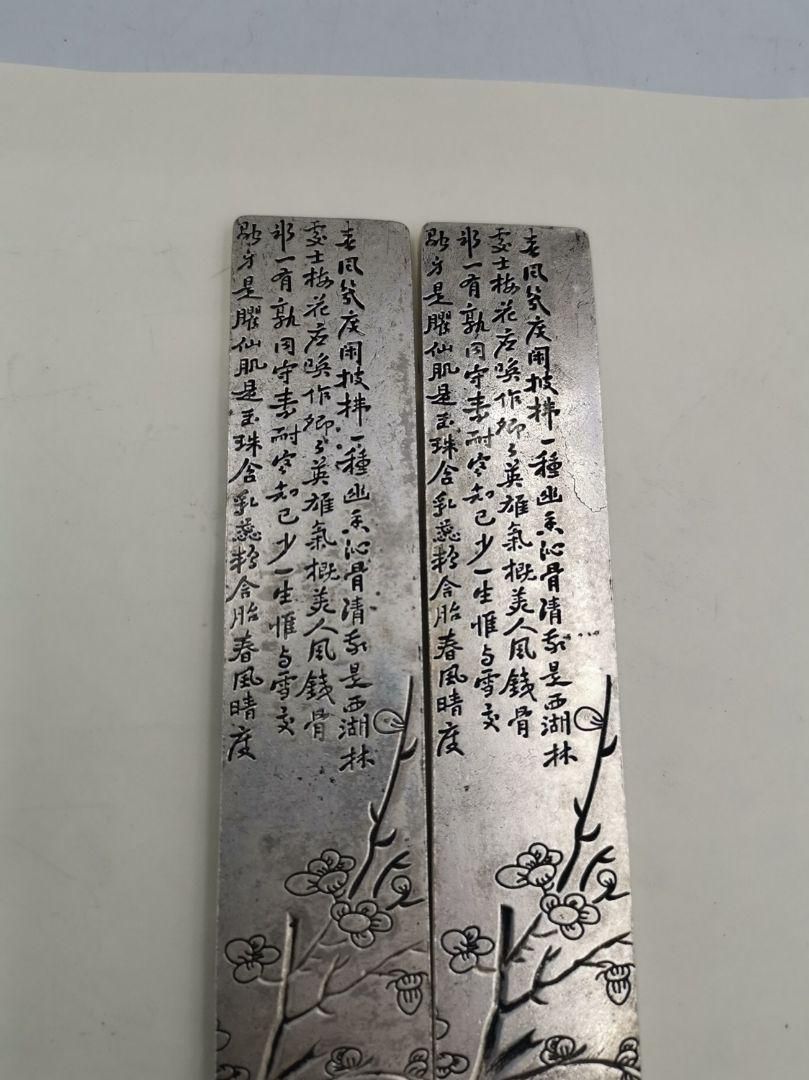 春風氣度闲披拂一種幽香沁骨清我是西湖林
處士梅花应喚作卿卿英雄氣概美人風錢骨
祁一有孰同守素耐寒知己少一生惟与雪交
是臞仙肌是玉珠含乳蕊粉含胎春風晴度
春風氣度闲披拂一種幽香沁骨清我是西湖林
處士梅花应喚作卿卿英雄氣概美人風錢骨
祁一有孰同守素耐寒知己少一生惟与雪交
是臞仙肌是玉珠含乳蕊粉含胎春風晴度